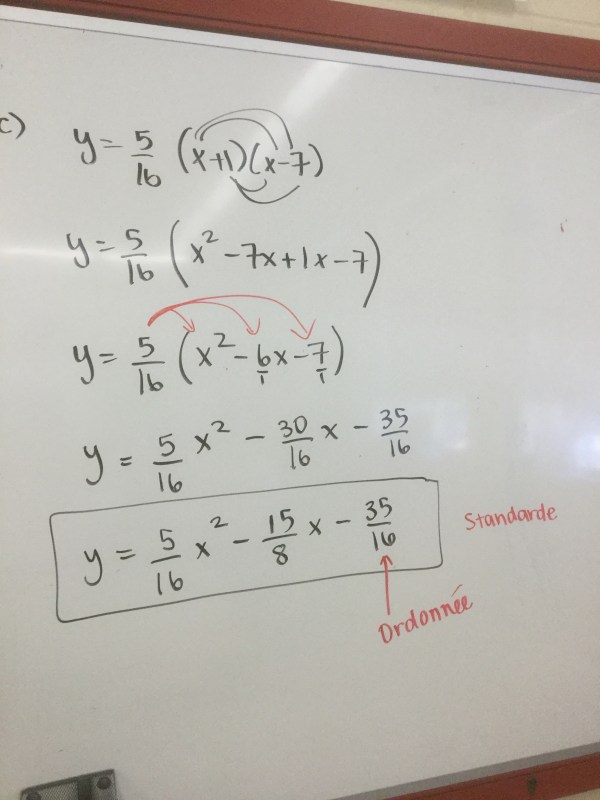 c) y = 5/16 (x+1)(x-7)
y = 5/16 (x² - 7x + 1x - 7)
y = 5/16 (x² - 6/1 x - 7/1)
y = 5/16 x² - 30/16 x - 35/16
y = 5/16 x² - 15/8 x - 35/16
Standarde
Ordonnée